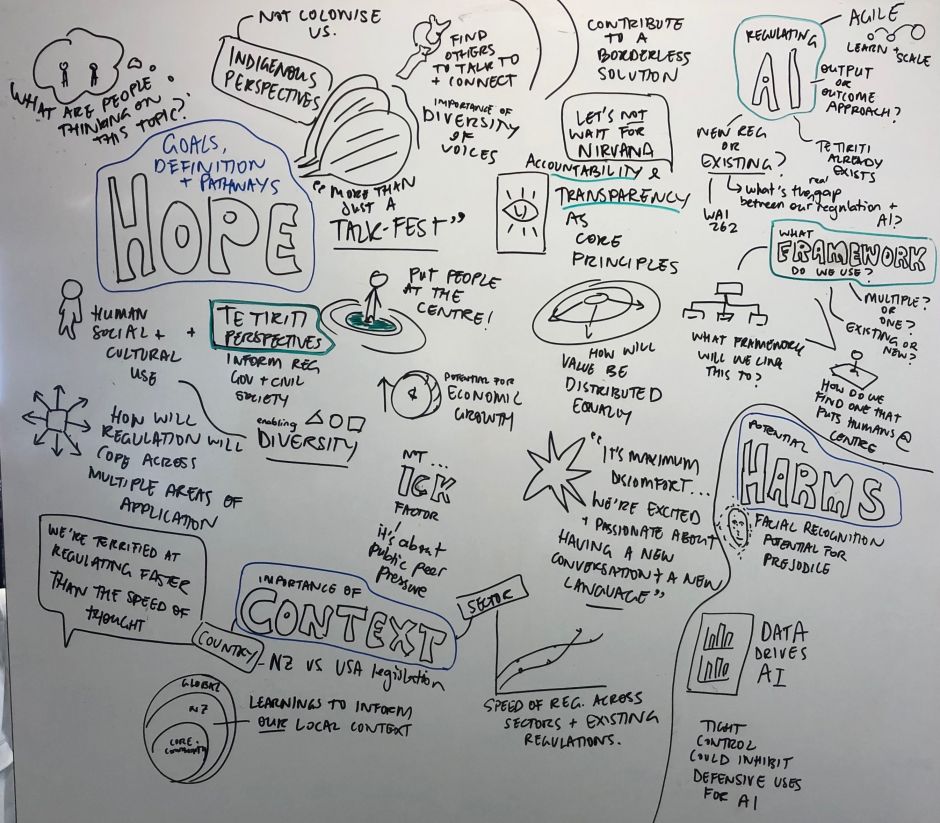 WHAT ARE PEOPLE
THINKING ON
THIS TOPIC?
NOT COLONISE
US.
INDIGENOUS
PERSPECTIVES
GOALS,
DEFINITION
+ PATHWAYS
HOPE
FIND
OTHERS
TO TALK TO
+ CONNECT
IMPORTANCE OF
DIVERSITY
OF
VOICES
"MORE THAN
JUST A
TALK-FEST"
CONTRIBUTE
TO A
BORDERLESS
SOLUTION
LET'S NOT
WAIT FOR
NIRVANA
ACCOUNTABILITY &
TRANSPARENCY
AS
CORE
PRINCIPLES
REGULATING
AI
AGILE
LEARN +
SCALE
OUTPUT
OR
OUTCOME
APPROACH?
NEW REG
OR
EXISTING?
TE TIRITI
ALREADY
EXISTS
real
what's the gap
between our regulation +
AI?
WAI
262
WHAT
FRAMEWORK
DO WE USE?
MULTIPLE?
OR
ONE?
EXISTING
OR
NEW?
WHAT FRAMEWORK
WILL WE LINK
THIS TO?
HOW DO WE
FIND ONE THAT
PUTS HUMANS @
CENTRE
HUMAN
SOCIAL +
CULTURAL
USE
+
TE TIRITI
PERSPECTIVES
INFORM REG
GOV + CIVIL
SOCIETY
PUT PEOPLE
AT THE
CENTRE!
enabling
DIVERSITY
$
POTENTIAL FOR
ECONOMIC
GROWTH
HOW WILL
VALUE BE
DISTRIBUTED
EQUALLY
HOW WILL
REGULATION WILL
COPE ACROSS
MULTIPLE AREAS OF
APPLICATION
NOT...
ICK
FACTOR
it's about
public peer
pressure
"IT'S MAXIMUM
DISCOMFORT...
WE'RE EXCITED
+ PASSIONATE ABOUT
HAVING A NEW
CONVERSATION + A NEW
LANGUAGE"
POTENTIAL
HARMS
FACIAL RECOGNITION
POTENTIAL FOR
PREJUDICE
WE'RE TERRIFIED AT
REGULATING FASTER
THAN THE SPEED OF
THOUGHT
IMPORTANCE OF
CONTEXT
SECTOR
COUNTRY
- NZ VS USA legislation
GLOBAL
NZ
CORE
COMMUNITY
LEARNINGS TO INFORM
OUR LOCAL CONTEXT
SPEED OF REG. ACROSS
SECTORS + EXISTING
REGULATIONS.
DATA
DRIVES
AI
TIGHT
CONTROL
COULD INHIBIT
DEFENSIVE USES
FOR AI